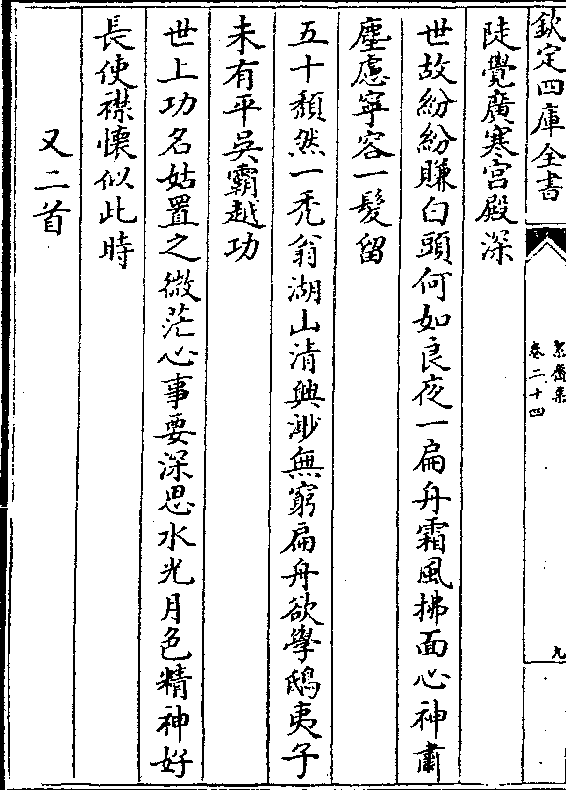 欽定四庫全書
絜齋集
卷二十四
九
陡覺廣寒宫殿深
世故紛紛賺白頭何如良夜一扁舟霜風拂面心神肅
塵慮寧容一髮留
五十頽然一禿翁湖山清興渺無窮扁舟欲學鴟夷子
未有平吳霸越功
世上功名姑置之微茫心事要深思水光月色精神好
長使襟懷似此時
又二首